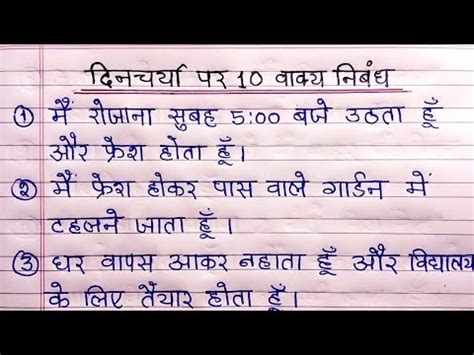 दिनचर्या पर 10 वाक्य निबंध
① मैं रोजाना सुबह 5:00 बजे उठता हूँ
और फ्रेश होता हूँ।
② मैं फ्रेश होकर पास वाले गार्डन में
टहलने जाता हूँ।
③ घर वापस आकर नहाता हूँ और विद्यालय
के लिए तैयार होता हूँ।